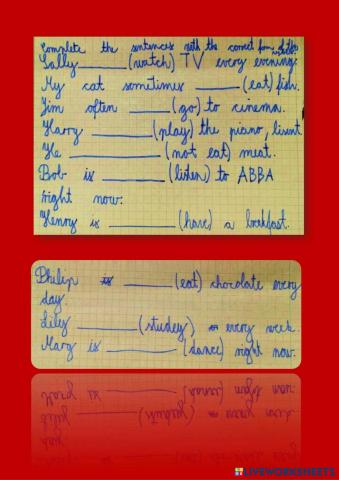 Complete the sentences with the correct form of the
Sally ________ (watch) TV every evening.
My cat sometimes ________ (eat) fish.
Jim often ________ (go) to cinema.
Harry ________ (play) the piano,
He ________ (not eat) meat.
Bob is ________ (listen) to ABBA
right now.
Henry is ________ (have) a breakfast.
Philip ________ (eat) chocolate every
day.
Lily ________ (studey) every week.
Mary is ________ (dance) right now.
LIVEWORKSHEETS